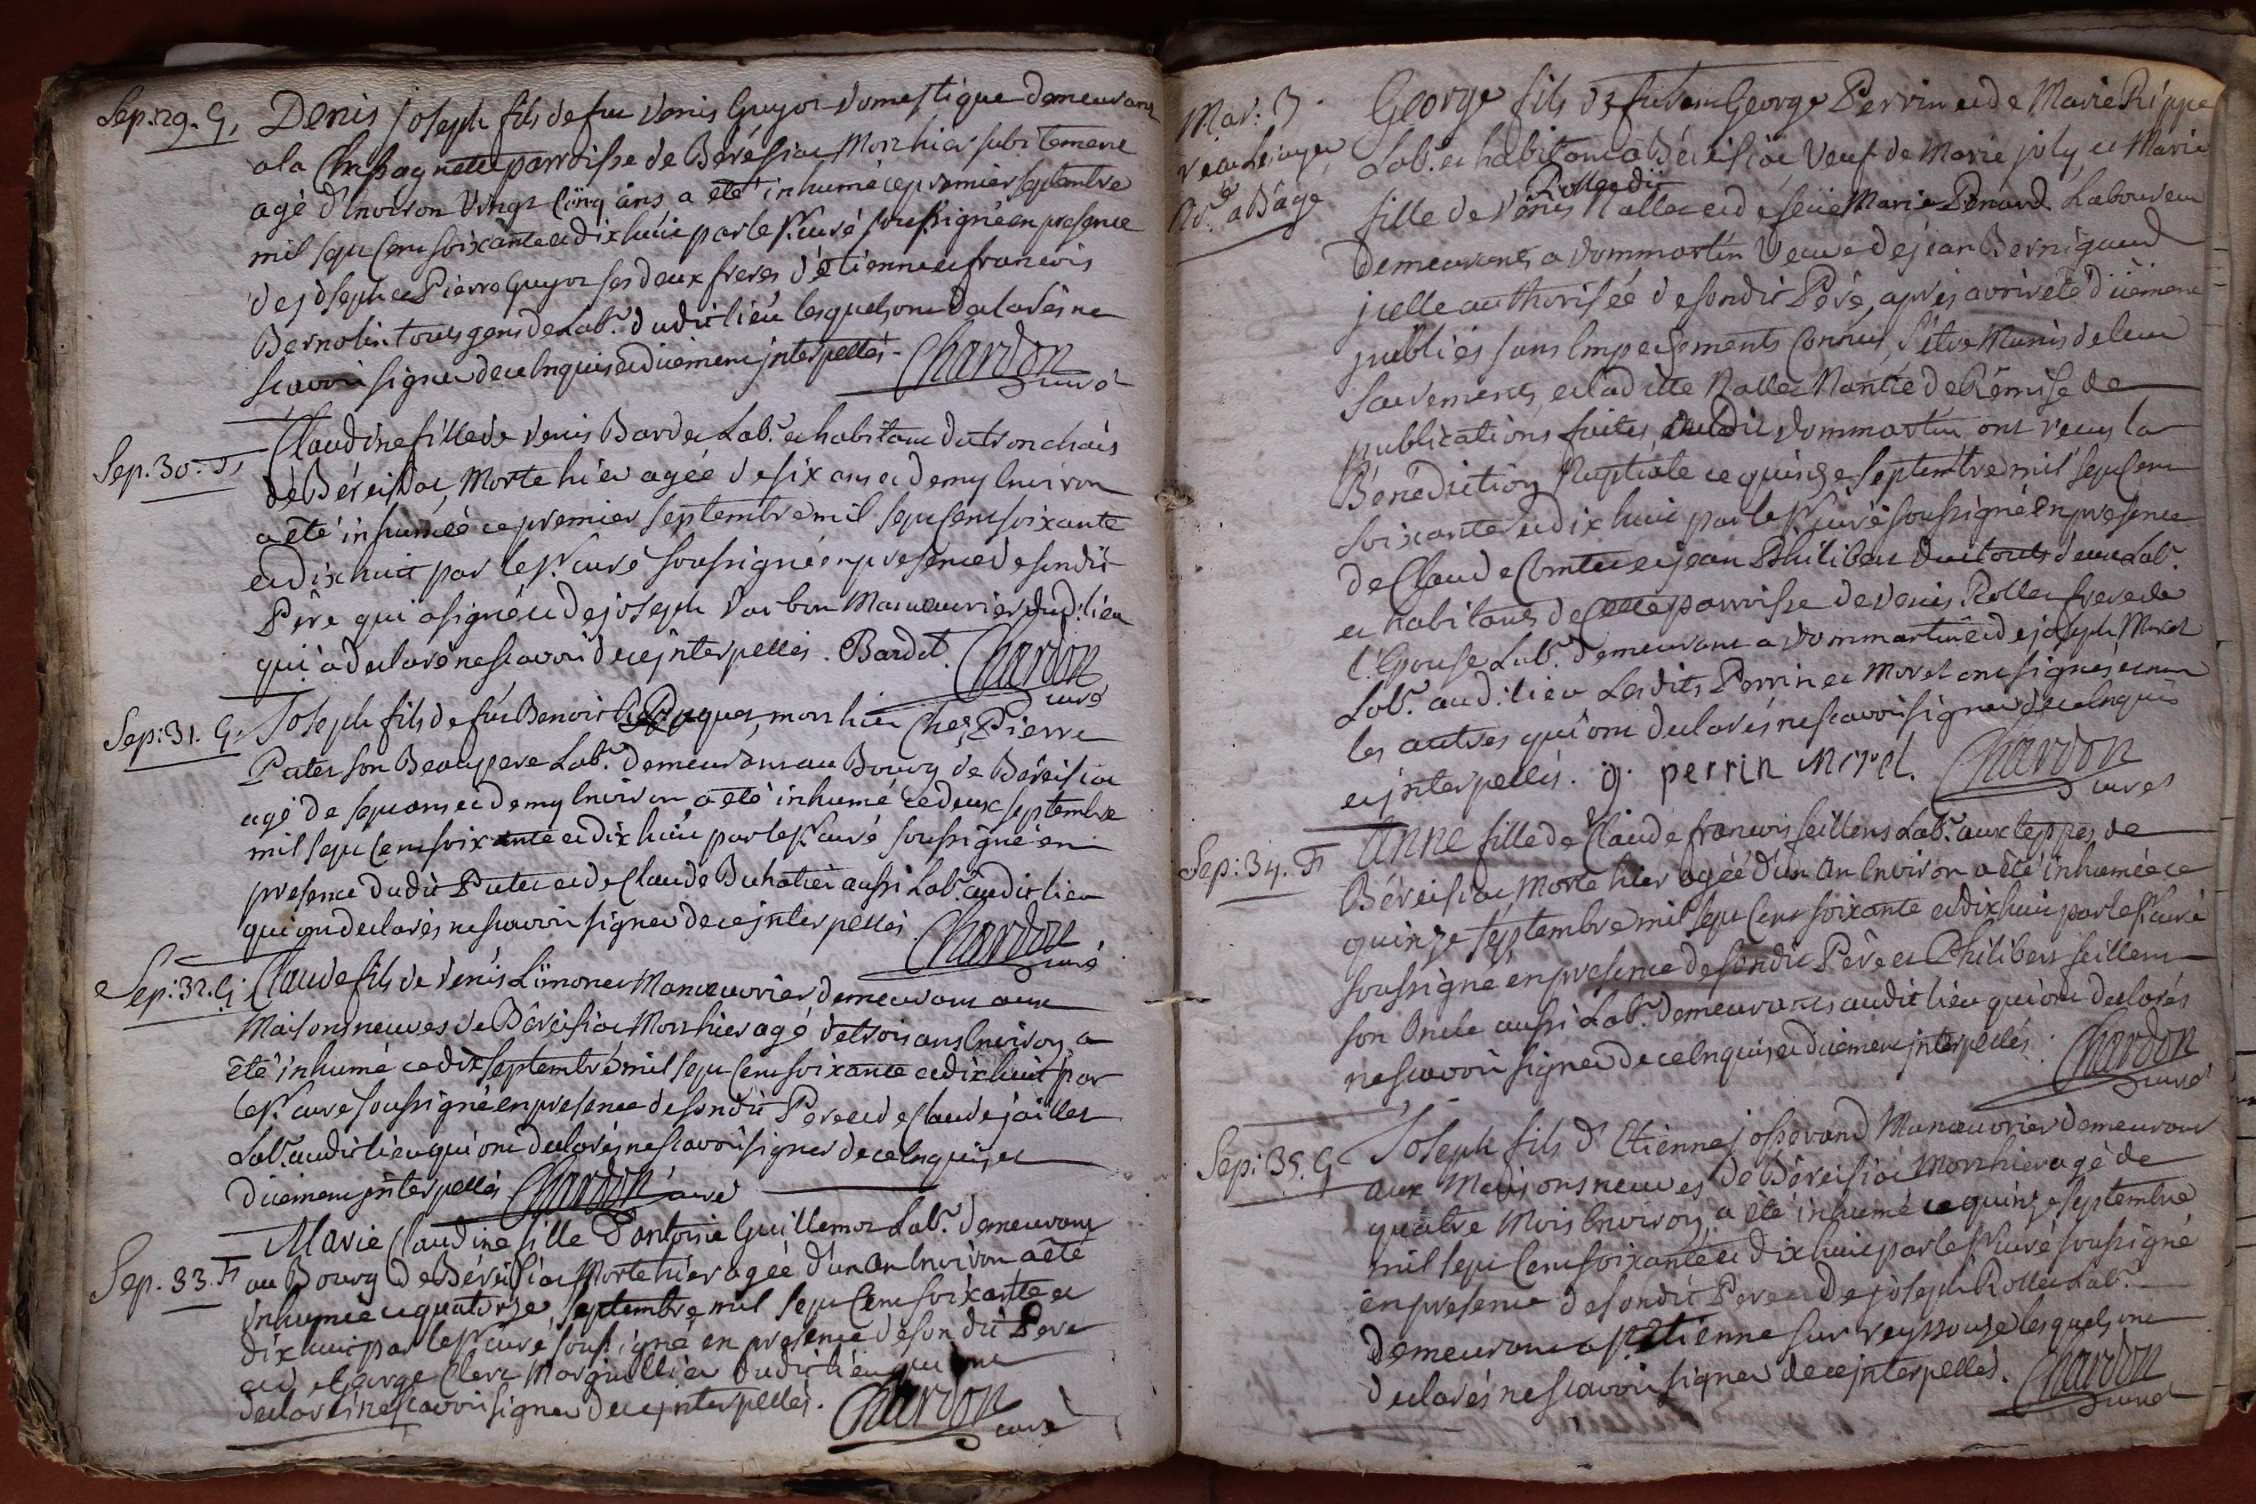 Sep: 29. G,
Denis joseph fils de feu denis Guyot domestique demeurant
a la Chassagnette parroisse de Béréisiat Mort hier subitement
agé d'environ vingt cinq ans a été inhumé ce premier septembre
mil sept cent soixante et dix huit par le Sr. curé soussigné en presence
de joseph et Pierre Guyot ses deux freres d'étienne et francois
Bernolin tous gens de Lab.r dudit lieu lesquels ont declarés ne
scavoir signer de ce enquis et duement interpellés. Chardon
curé
Sep. 30. F,
Claudine fille de denis Bardet Lab.r et habitant du tronchais
de Béreisiat, Morte hier agée de six ans et demy environ
a été inhumée ce premier septembre mil sept cent soixante
et dix huit par le Sr. curé soussigné en presence de son dit
Pére qui a signé et de joseph Manœuvrier dud. lieu
qui a declaré ne scavoir de ce interpellés. Bardet. Chardon
curé
Sep: 31. G,
Joseph fils de feu Benoit mort hier Chez Pierre
Putet son Beaupere Lab.r demeurant au Bourg de Béreisiat
agé de sept ans et demy environ a été inhumé ce deux septembre
mil sept cent soixante et dix huit par le Sr. curé soussigné en
presence dudit Putet et de Claude Duhatier aussi Lab.r audit lieu
qui ont declarés ne scavoir signer de ce interpellés Chardon
curé
Sep: 32. G,
Claude fils de denis Limonet Manœuvrier demeurant aux
Maisons neuves de Béreisiat Mort hier agé de trois ans environ a
été inhumé ce dix septembre mil sept cent soixante et dix huit par
le Sr. curé soussigné en presence de son dit Pere et de Claude jaillet
Lab.r audit lieu qui ont declarés ne scavoir signer de ce enquis et
duement interpellés Chardon curé
Sep. 33. F,
Marie Claudine fille d'antoine Guillemot Lab.r demeurant
au Bourg de Béréisiat Morte hier agée d'un an environ a été
inhumée ce quatorze septembre mil sept cent soixante et
dix huit par le Sr. curé soussigné en presence de son dit Pere
et de George Clerc Marguillier dudit lieu qui ont
declarés ne scavoir signer de ce interpellés. Chardon
curé
Mar: 3.
a Bâge
George fils de feu George Perrin et de Marie Rippe
Lab.r et habitant a Béréisiat, Veuf de Marie joly, et Marie
Rollet dit
fille de denis Nallet et de feüe Marie Penard Laboureur
demeurants a dommartin Veuve de jean Bernigaud
icelle authorisée de son dit Pére, apres avoir été duement
publiés sans Empechements Connus, s'etre Munis de leur
sacrements, et ladite Nallet Nantie de Remise de
publications faites audit dommartin ont reçus la
Bénédiction Nuptiale ce quinze septembre mil sept cent
soixante et dix huit par le Sr. curé soussigné en presence
de Claude Comtet et jean Philibert tous deux Lab.r
et habitants de Cette parroisse de denis Rollet frere de
l'Epouse Lab.r demeurant a dommartin et de joseph Morel
Lab.r aud. lieu Lesdits Perrin et Morel ont signés et non
les autres qui ont declarés ne scavoir signer de ce enquis
et interpellés. g. perrin morel. Chardon
curé
Sep: 34. F
Anne fille de Claude francois seillens Lab.r aux teppes de
Béréisiat Morte hier agée d'un an environ a été inhumée ce
quinze septembre mil sept cent soixante et dix huit par le Sr. curé
soussigné en presence de son dit Pére et Philibert seillens
son Oncle aussi Lab.r demeurants audit lieu qui ont declarés
ne scavoir signer de ce enquis et duement interpellés. Chardon
curé
Sep: 35. G
Joseph fils d'Etienne josserand Manœuvrier demeurant
aux Maisons neuves de Béreisiat Mort hier agé de
quatre Mois environ, a été inhumé ce quinze septembre
mil sept cent soixante et dix huit par le Sr. curé soussigné
en presence de son dit Pere et de joseph Rollet Lab.r
demeurant a St. Etienne sur reyssouze lesquels ont
declarés ne scavoir signer de ce interpellés. Chardon
curé